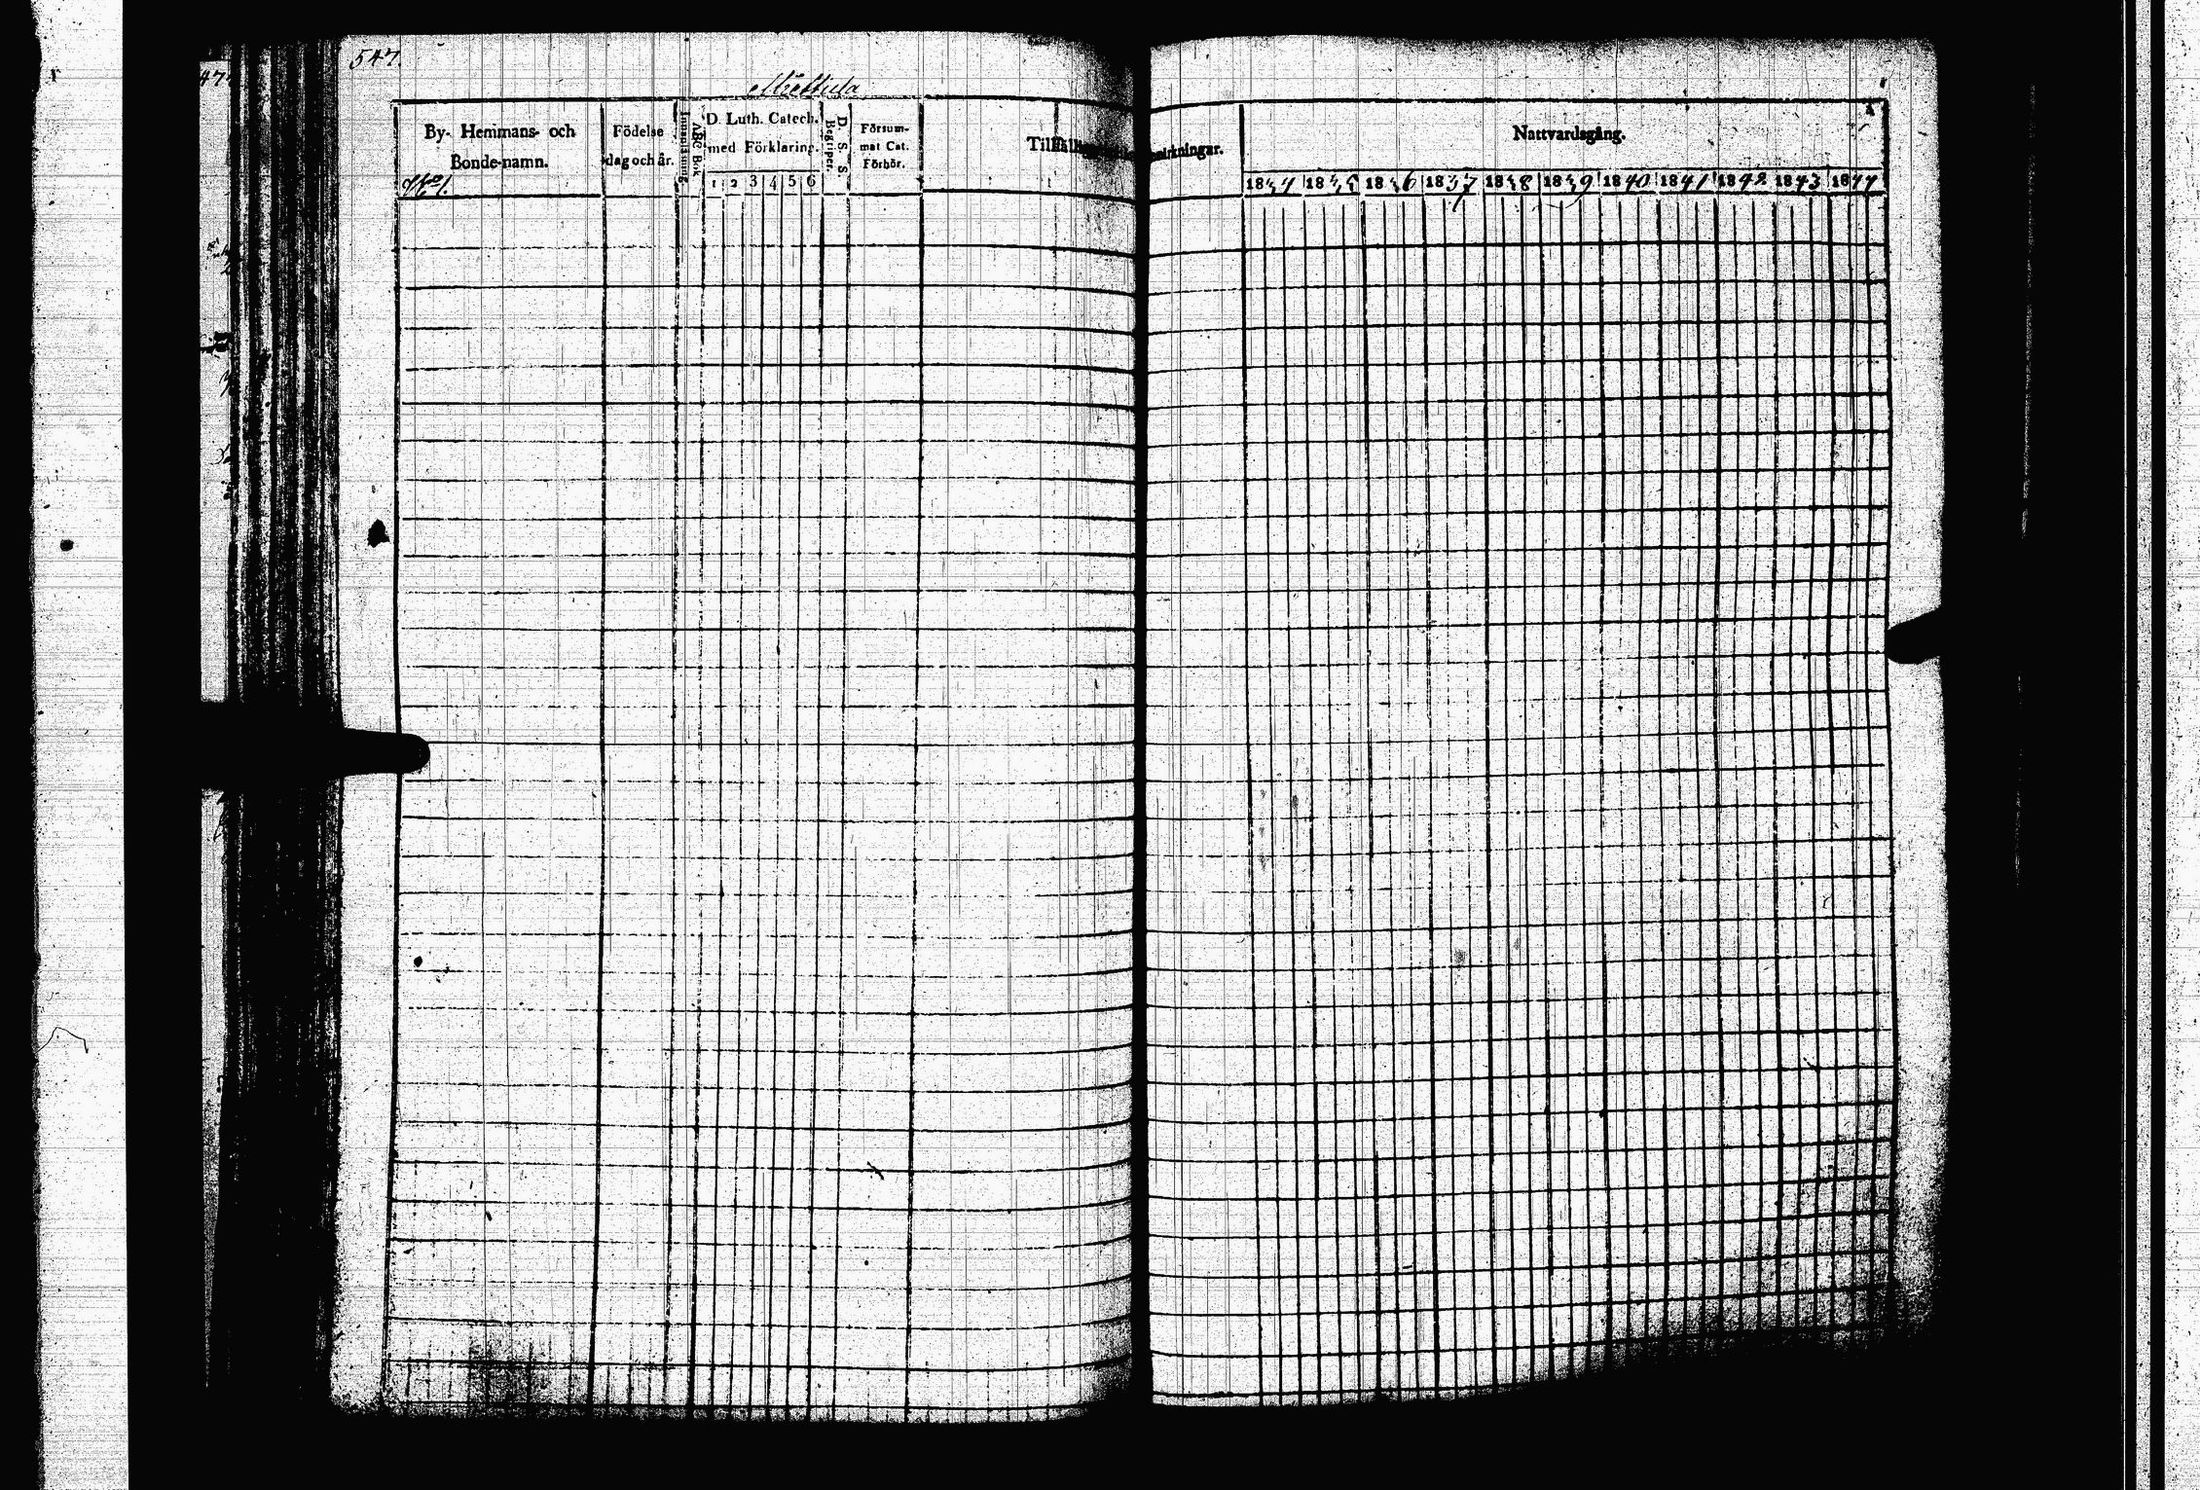 547
Mickkula
By- Hemmans- och
Bonde-namn.
No 1.
Födelse
dag och år.
Innanläsning.
ABC Bok
D. Luth. Catech.
med Förklaring.
1 2 3 4 5 6
D. S. S.
Begriper.
Försum-
mat Cat.
Förhör.
Nattvardsgång.
1834 1835 1836 1837 1838 1839 1840 1841 1842 1843 1844